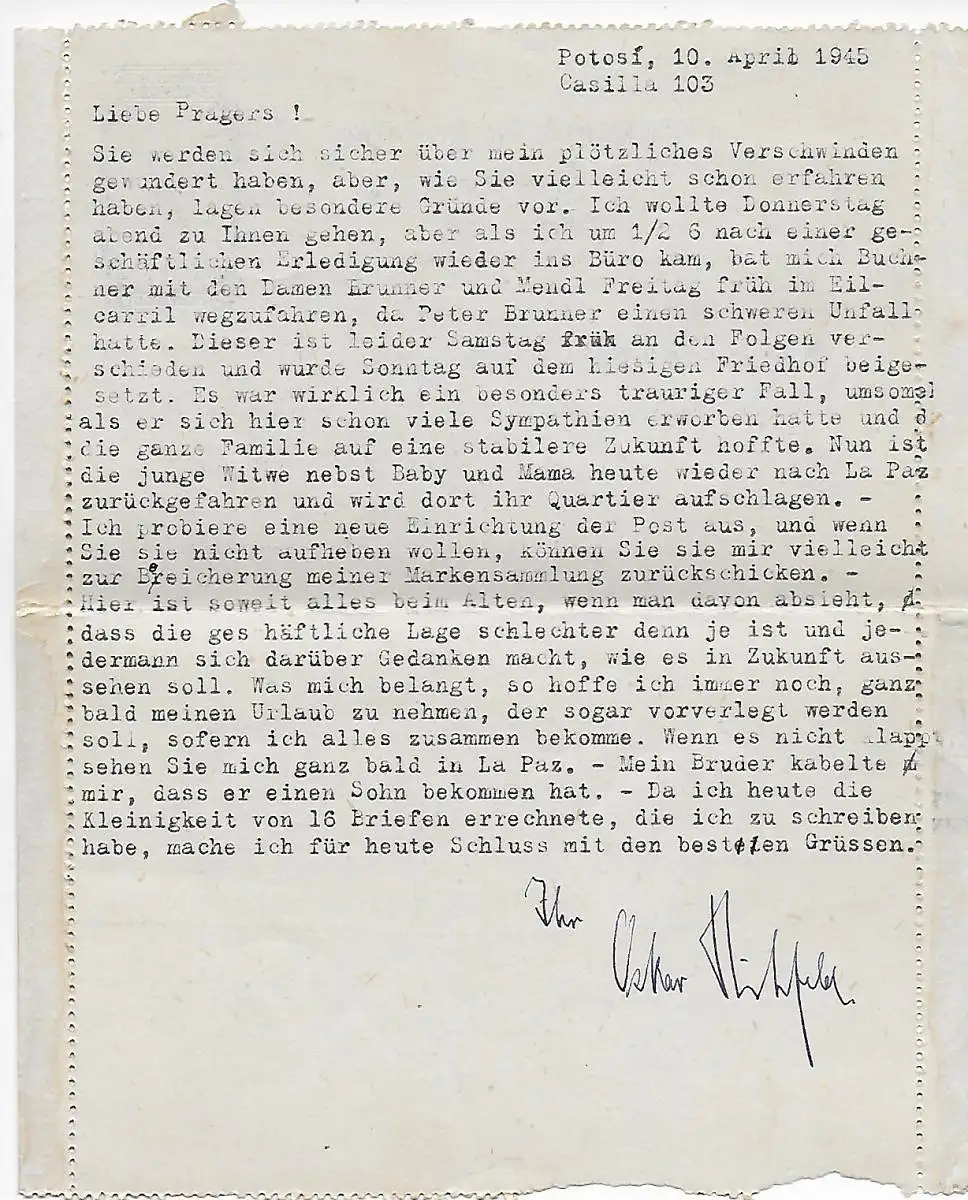 Potosí, 10. April 1945
Casilla 103
Liebe Pragers !
Sie werden sich sicher über mein plötzliches Verschwinden
gewundert haben, aber, wie Sie vielleicht schon erfahren
haben, lagen besondere Gründe vor. Ich wollte Donnerstag
abend zu Ihnen gehen, aber als ich um 1/2 6 nach einer ge-
schäftlichen Erledigung wieder ins Büro kam, bat mich Buch-
ner mit den Damen Brunner und Mendl Freitag früh im Eil-
carril wegzufahren, da Peter Brunner einen schweren Unfall
hatte. Dieser ist leider Samstag früh an den Folgen ver-
schieden und wurde Sonntag auf dem hiesigen Friedhof beige-
setzt. Es war wirklich ein besonders trauriger Fall, umsome
als er sich hier schon viele Sympathien erworben hatte und d
die ganze Familie auf eine stabilere Zukunft hoffte. Nun ist
die junge Witwe nebst Baby und Mama heute wieder nach La Paz
zurückgefahren und wird dort ihr Quartier aufschlagen. -
Ich probiere eine neue Einrichtung der Post aus, und wenn
Sie sie nicht aufheben wollen, können Sie sie mir vielleicht
zur Bereicherung meiner Markensammlung zurückschicken. -
Hier ist soweit alles beim Alten, wenn man davon absieht,
dass die ges häftliche Lage schlechter denn je ist und je-
dermann sich darüber Gedanken macht, wie es in Zukunft aus-
sehen soll. Was mich belangt, so hoffe ich immer noch, ganz
bald meinen Urlaub zu nehmen, der sogar vorverlegt werden
soll, sofern ich alles zusammen bekomme. Wenn es nicht klappt
sehen Sie mich ganz bald in La Paz. - Mein Bruder kabelte
mir, dass er einen Sohn bekommen hat. - Da ich heute die
Kleinigkeit von 16 Briefen errechnete, die ich zu schreiben
habe, mache ich für heute Schluss mit den besten Grüssen.
Ihr
Oskar